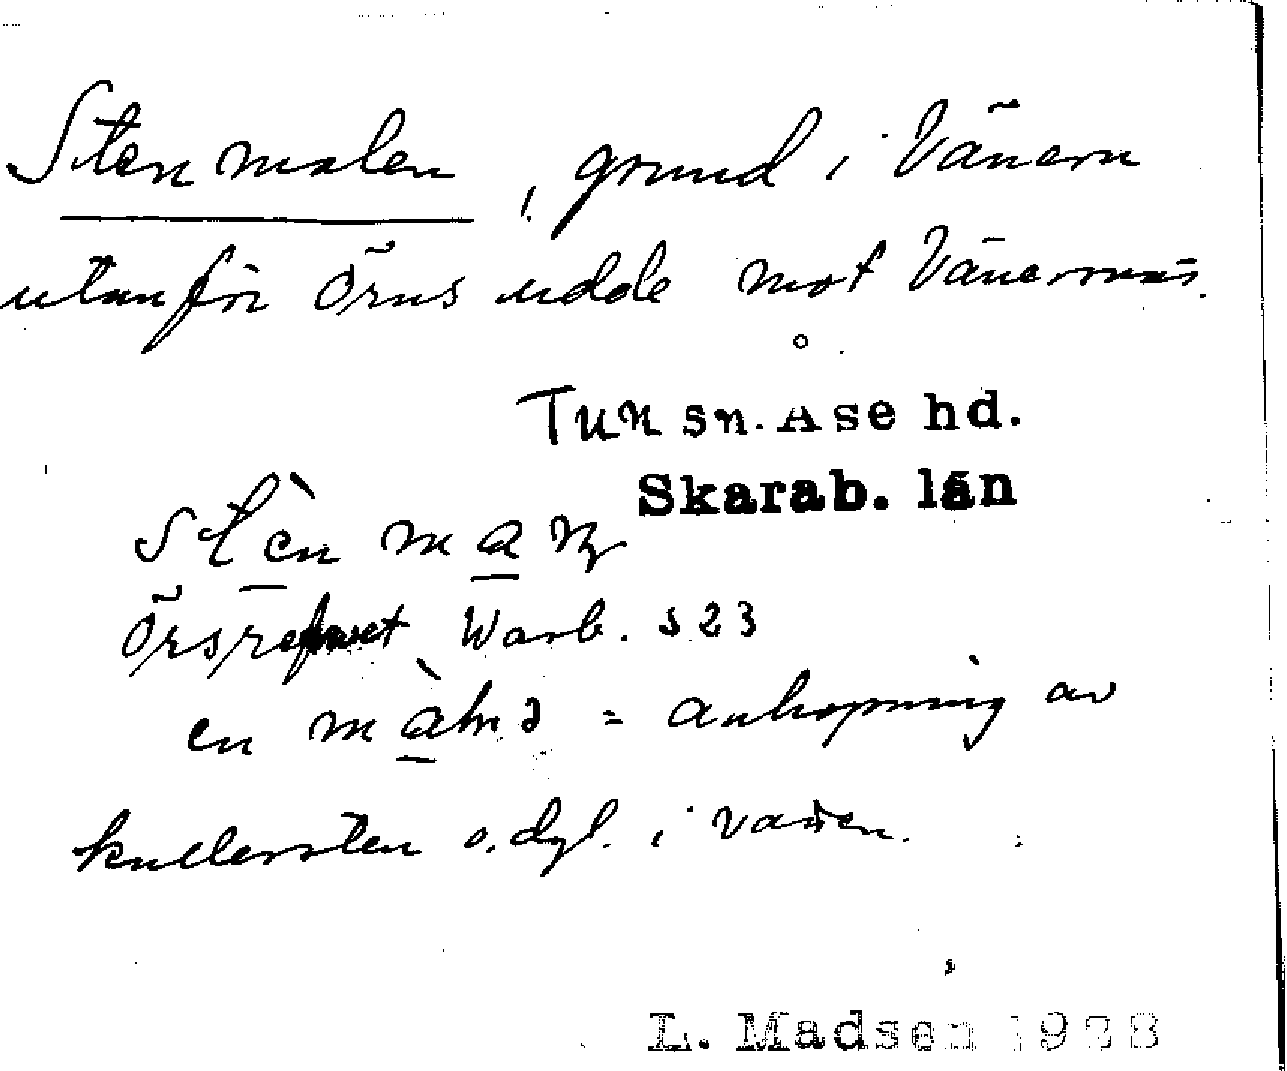 Stenmalen, grund i Vänern
utanför Örns udde mot Vänersnäs.
Tun sn. Åse hd.
Skarab. län
Örsrefvet Warb. s 23
en = anhopning av
kullersten o. dyl. i vatten.
L. Madsen